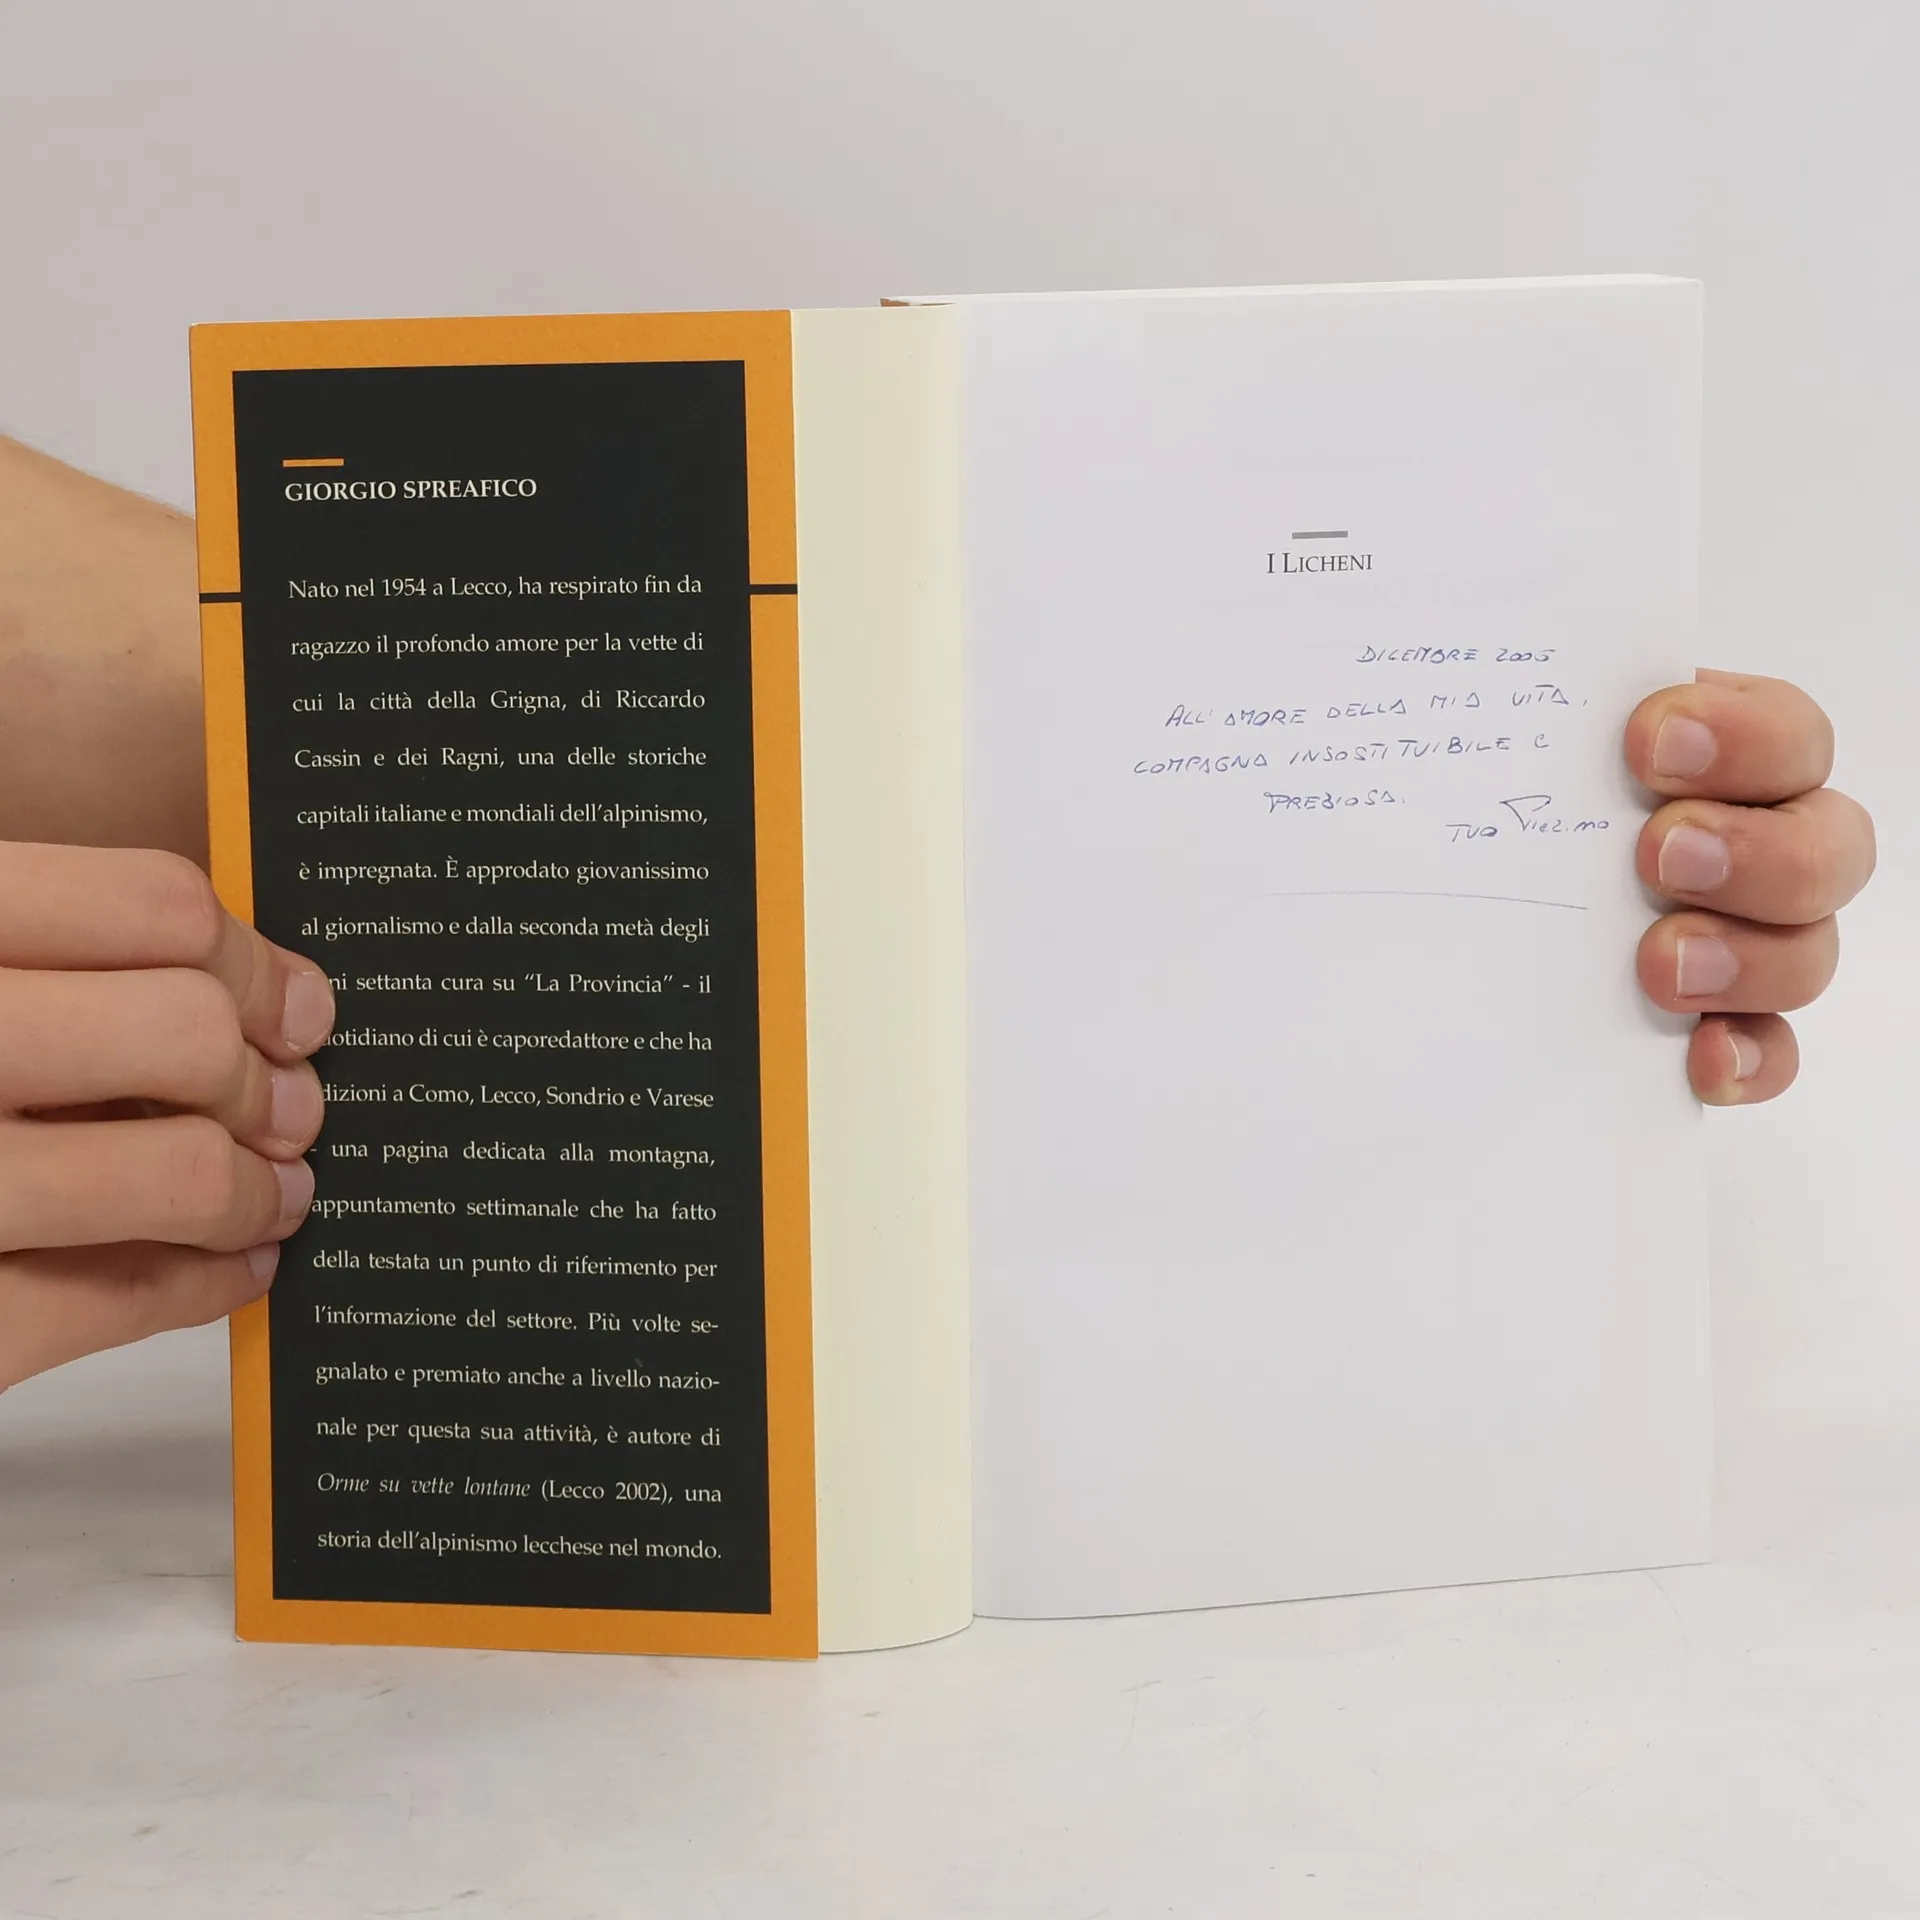 GIORGIO SPREAFICO
Nato nel 1954 a Lecco, ha respirato fin da
ragazzo il profondo amore per la vette di
cui la città della Grigna, di Riccardo
Cassin e dei Ragni, una delle storiche
capitali italiane e mondiali dell'alpinismo,
è impregnata. È approdato giovanissimo
al giornalismo e dalla seconda metà degli
ni settanta cura su “La Provincia” - il
otidiano di cui è caporedattore e che ha
dizioni a Como, Lecco, Sondrio e Varese
- una pagina dedicata alla montagna,
appuntamento settimanale che ha fatto
della testata un punto di riferimento per
l'informazione del settore. Più volte se-
gnalato e premiato anche a livello nazio-
nale per questa sua attività, è autore di
Orme su vette lontane (Lecco 2002), una
storia dell'alpinismo lecchese nel mondo.
I LICHENI
DICEMBRE 2005
ALL'AMORE DELLA MIA VITA,
COMPAGNA INSOSTITUIBILE E
PREZIOSA.
TUO